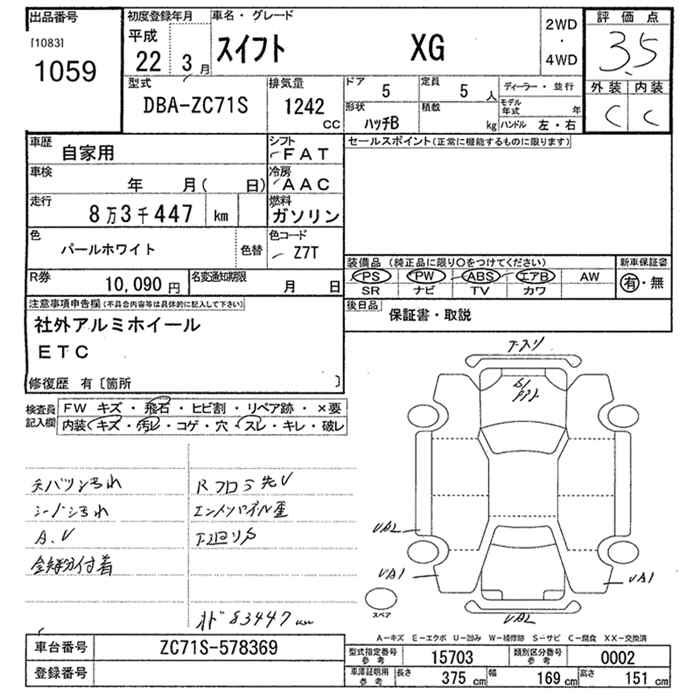 出品番号
[1083]
1059
初度登録年月
平成
22 3月
車名・グレード
スイフト XG
2WD
・
4WD
評価点
3.5
外装 内装
C C
型式
DBA-ZC71S
排気量
1242
cc
ドア
5
定員
5 人
ディーラー・並行
形状
ハッチB
積載
kg
モデル年式 年
ハンドル 左・右
車歴
自家用
シフト
FAT
セールスポイント(正常に機能するものに限ります)
車検
年 月( 日)
冷房
AAC
走行
8万3千447 km
燃料
ガソリン
色
パールホワイト
色替
色コード
Z7T
装備品(純正品に限り○をつけてください)
PS PW ABS エアB AW
SR ナビ TV カワ
新車保証書
有・無
R券
10,090 円
名変通知期限
月 日
後日品
保証書・取説
注意事項申告欄(不具合内容等は具体的に記入して下さい)
社外アルミホイール
ETC
修復歴 有〔箇所 〕
検査員
記入欄
FW キズ・飛石・ヒビ割・リペア跡・×要
内装 キズ・汚レ・コゲ・穴・スレ・キレ・破レ
シートシミ汚れ
A.V
下廻りS
オド 83447 km
UA2
UA1
UA1
UA2
スペア
A-キズ E-エクボ U-凹み W-補修跡 S-サビ C-腐食 XX-交換済
車台番号
ZC71S-578369
登録番号
型式指定番号
参考
15703
類別区分番号
参考
0002
車庫証明用
参考
長さ
375 cm
幅
169 cm
高さ
151 cm